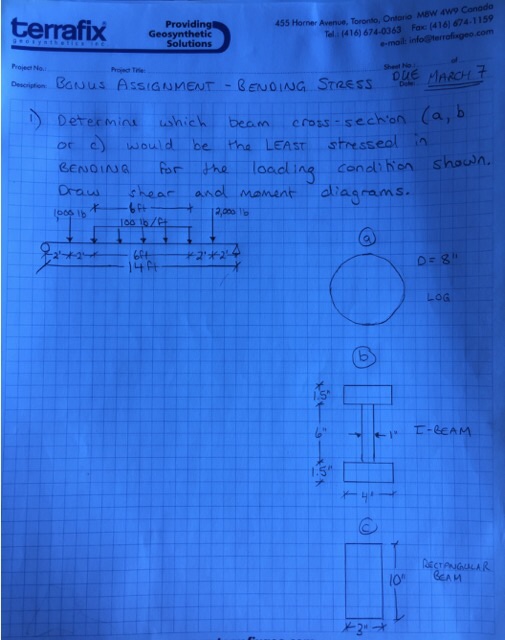 terrafix
geosynthetics inc
Providing
Geosynthetic
Solutions
455 Horner Avenue, Toronto, Ontario M8W 4W9 Canada
Tel.: (416) 674-0363 Fax: (416) 674-1159
e-mail: info@terrafixgeo.com
Project No.:
Project Title:
Sheet No.:
of
Description: BONUS ASSIGNMENT - BENDING STRESS
Date: DUE MARCH 7
1) Determine which beam cross-section (a, b
or c) would be the LEAST stressed in
BENDING for the loading condition shown.
Draw shear and moment diagrams.
1,000 lb
6ft
2,000 lb
100 lb/ft
2' 2' 6ft 2' 2'
14 ft
a
D = 8"
LOG
b
1.5"
6"
1"
I-BEAM
1.5"
4"
c
RECTANGULAR
BEAM
10"
3"